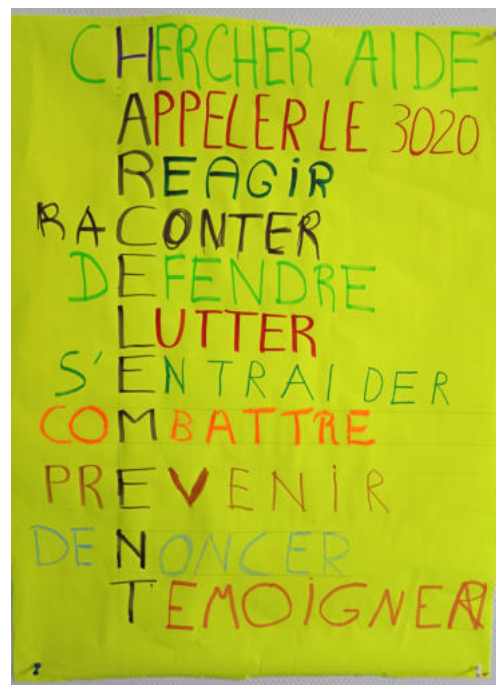 CHERCHER AIDE
APPELER LE 3020
REAGIR
RACONTER
DEFENDRE
LUTTER
S'ENTRAIDER
COMBATTRE
PREVENIR
DENONCER
TEMOIGNER